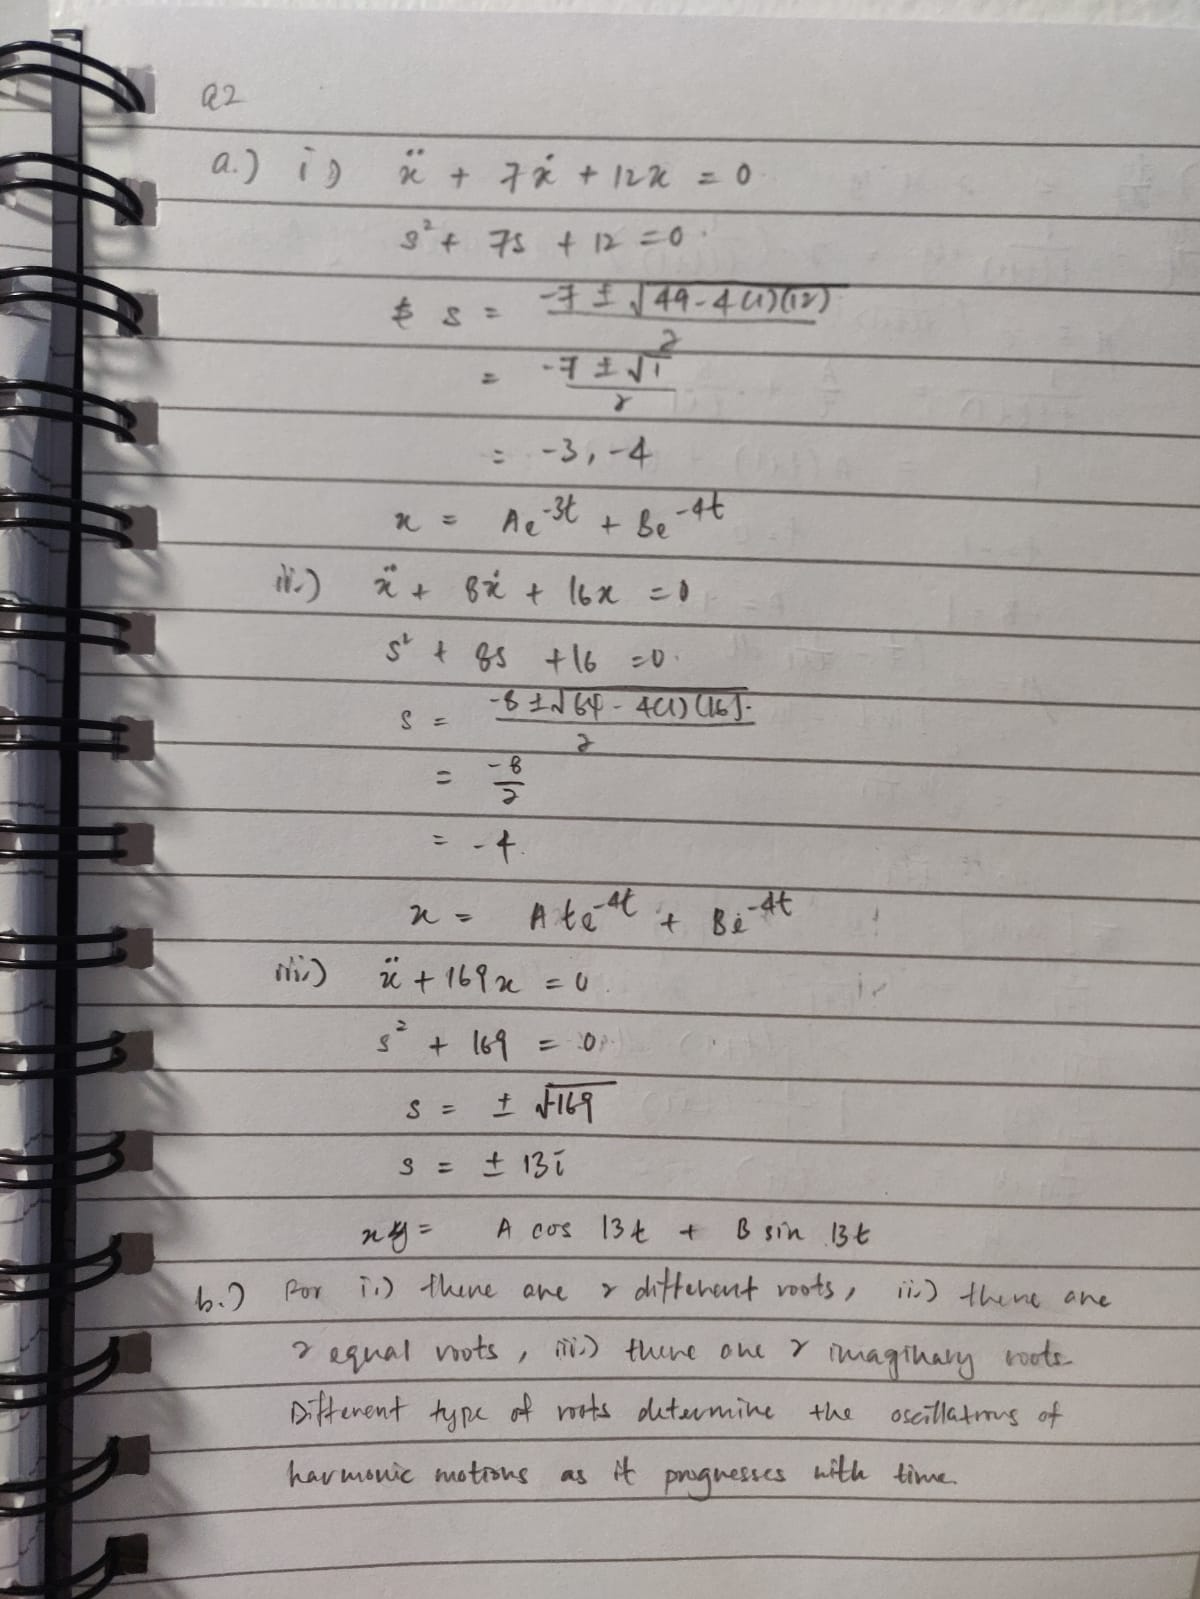 Q2
a.) i) ẍ + 7ẋ + 12x = 0
s² + 7s + 12 = 0
s = (-7 ± √(49-4(1)(12)))/2
= (-7 ± √1)/2
= -3, -4
x = Ae^-3t + Be^-4t
ii.) ẍ + 8ẋ + 16x = 0
s² + 8s + 16 = 0
s = (-8 ± √(64 - 4(1)(16)))/2
= -8/2
= -4
x = Ate^-4t + Be^-4t
iii.) ẍ + 169x = 0
s² + 169 = 0
s = ± √-169
s = ± 13i
x = A cos 13t + B sin 13t
b.) For i.) there are 2 different roots, ii.) there are
2 equal roots, iii.) there are 2 imaginary roots.
Different type of roots determine the oscillations of
harmonic motions as it progresses with time.